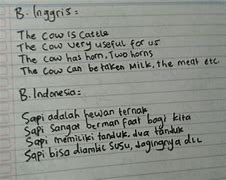 B. Inggris:
The cow is catele
The cow very useful for us
The cow has horn, Two horns
The cow can be taken Milk, the meat etc
B. Indonesia:
Sapi adalah hewan ternak
Sapi sangat bermanfaat bagi kita
Sapi memiliki tanduk, dua tanduk
Sapi bisa diambil susu, dagingnya dLL